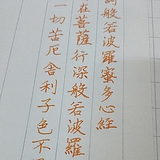 訶般若波羅蜜多心經
在菩薩行深般若波羅
一切苦厄舍利子色不